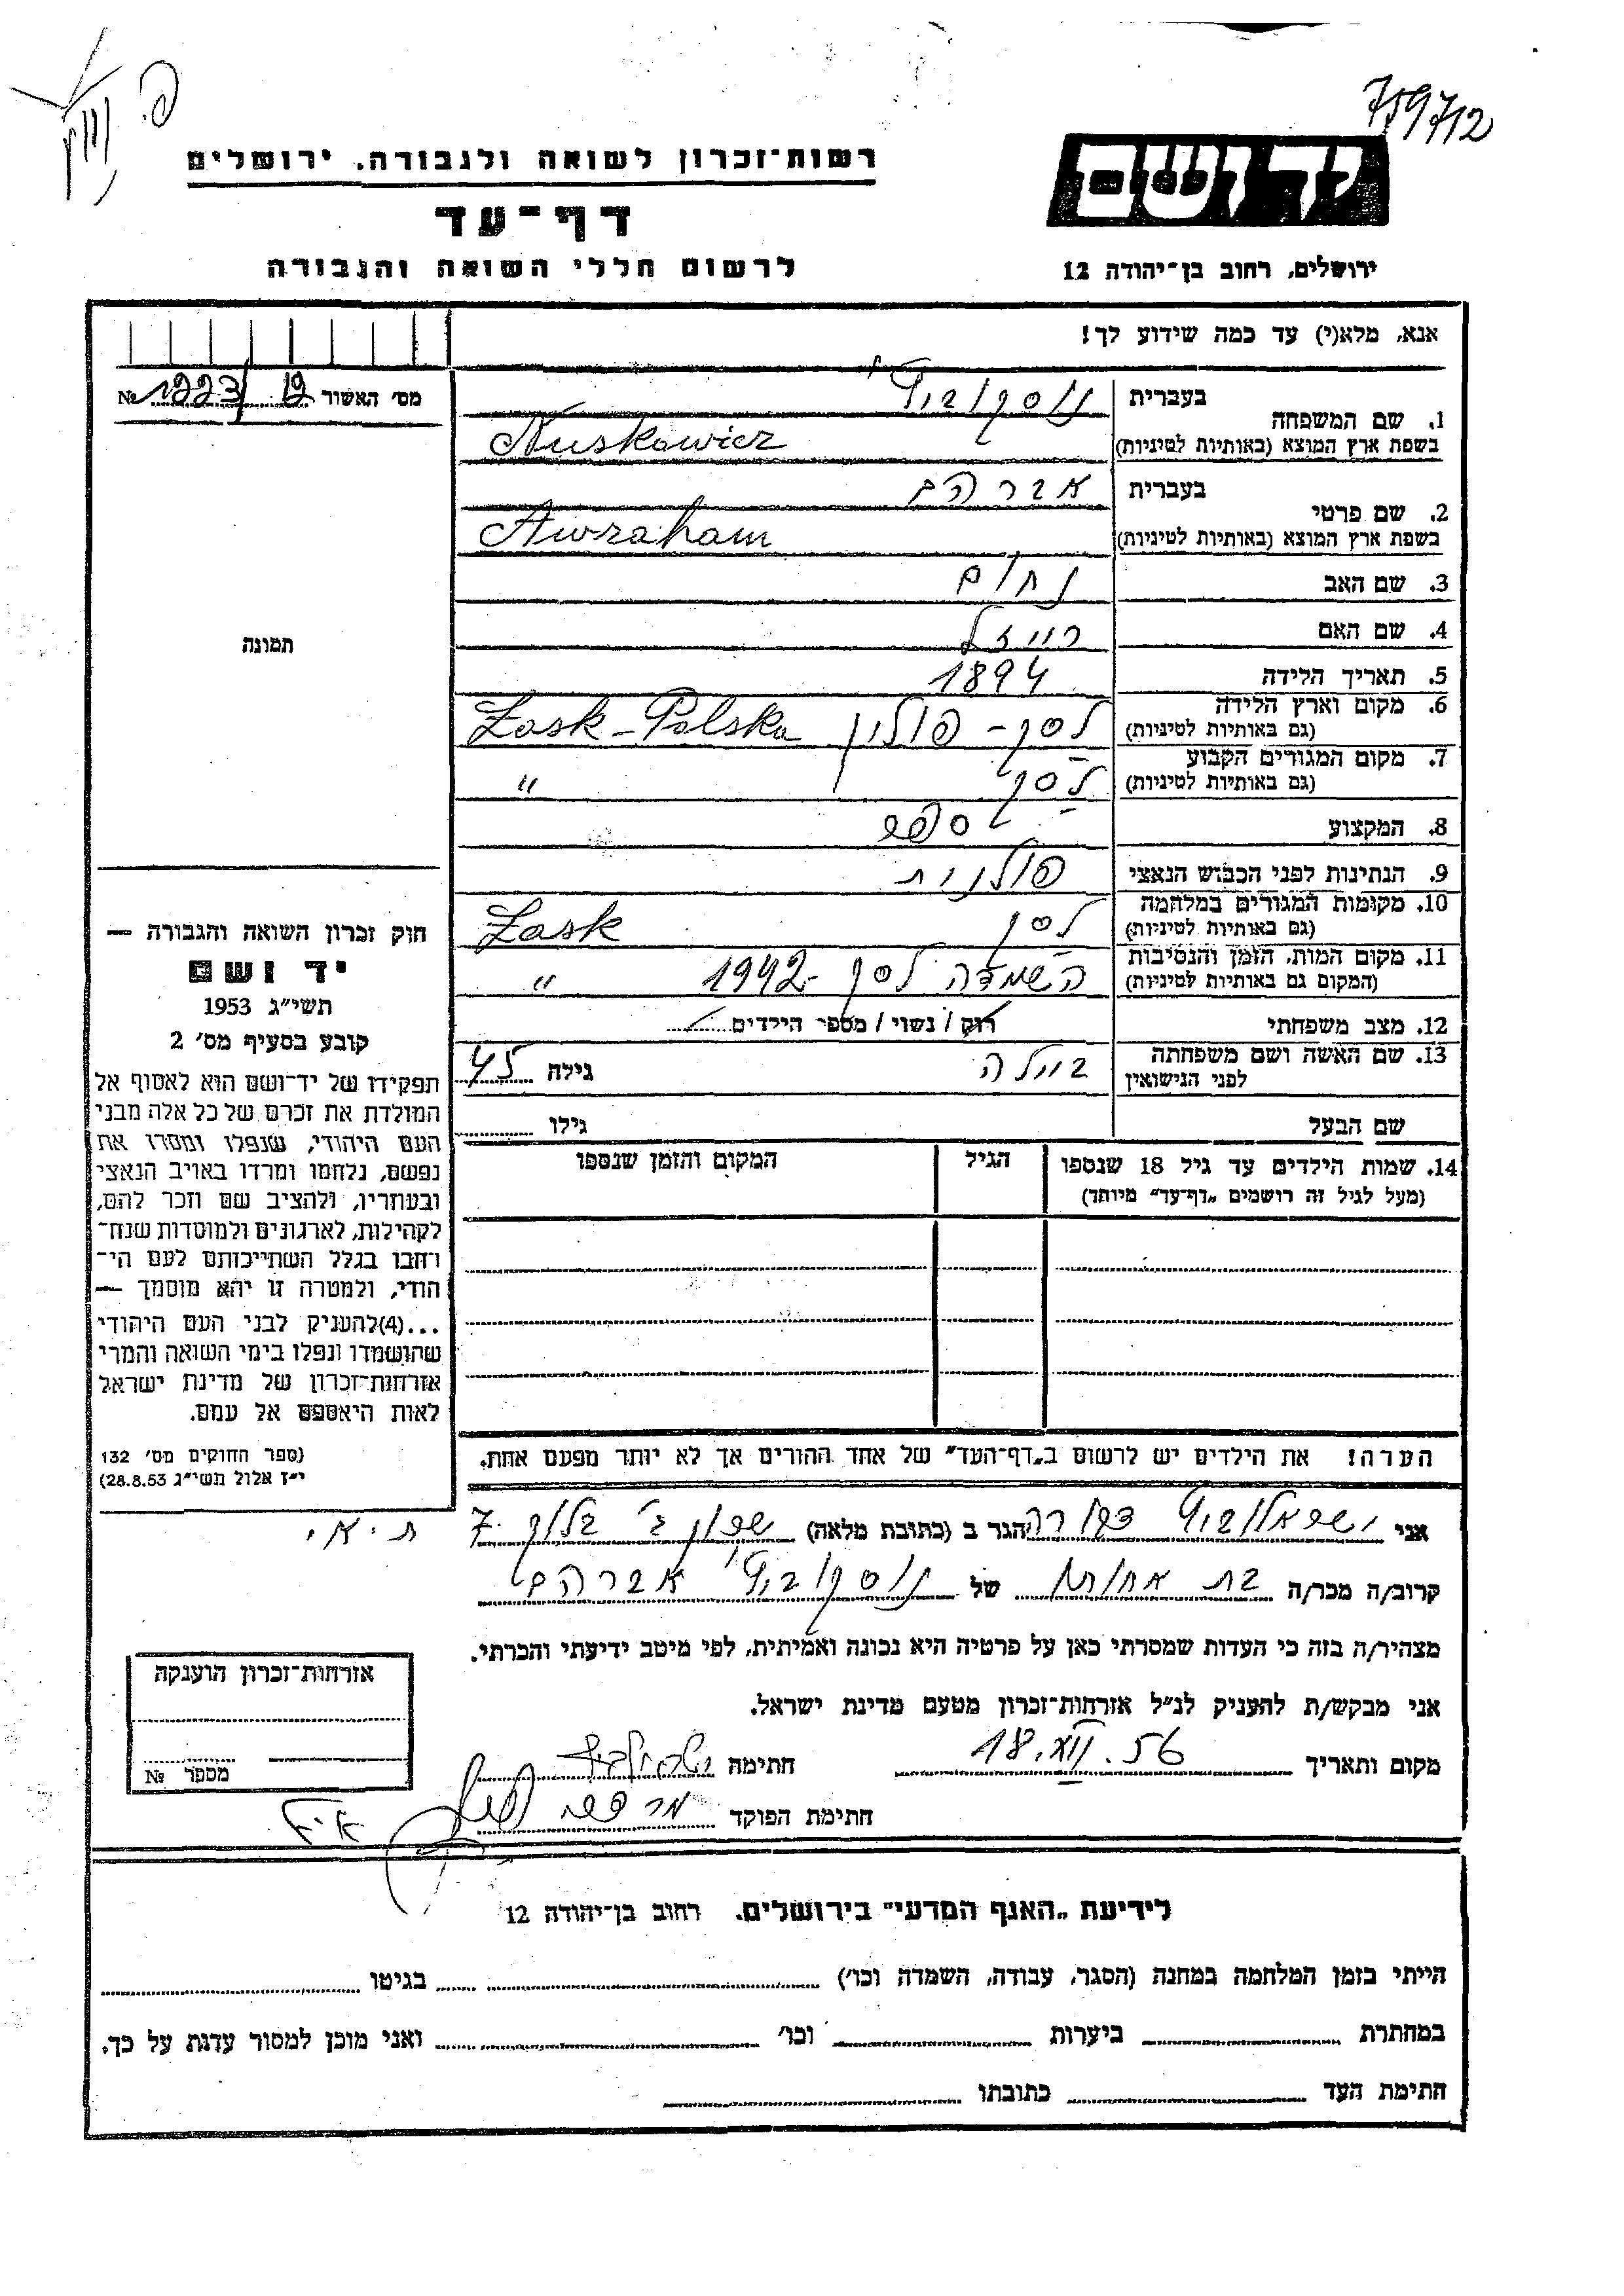 759712
רשות-זכרון לשואה ולגבורה, ירושלים
יד ושם
דף-עד
לרשום חללי השואה והגבורה
ירושלים, רחוב בן-יהודה 12
אנא, מלא(י) עד כמה שידוע לך!
מס׳ האשור 19 1223 №
1. שם המשפחה
בעברית נוסקוביץ
בשפת ארץ המוצא (באותיות לטיניות) Nuskowicz
2. שם פרטי
בעברית אברהם
בשפת ארץ המוצא (באותיות לטיניות) Awraham
3. שם האב נחום
4. שם האם רייזל
5. תאריך הלידה 1894
6. מקום וארץ הלידה לסק - פולין Łask - Polska
(גם באותיות לטיניות)
7. מקום המגורים הקבוע לסק "
(גם באותיות לטיניות)
8. המקצוע ספר
9. הנתינות לפני הכבוש הנאצי פולנית
10. מקומות המגורים במלחמה לסק Łask
(גם באותיות לטיניות)
11. מקום המות, הזמן והנסיבות השמדה לסק - 1942 "
(המקום גם באותיות לטיניות)
12. מצב משפחתי רוק / נשוי / מספר הילדים
13. שם האשה ושם משפחתה ביילה גילה 45
לפני הנישואין
שם הבעל גילו
14. שמות הילדים עד גיל 18 שנספו הגיל המקום והזמן שנספו
(מעל לגיל זה רושמים „דף-עד" מיוחד)
תמונה
חוק זכרון השואה והגבורה —
יד ושם
תשי״ג 1953
קובע בסעיף מס׳ 2
תפקידו של יד-ושם הוא לאסוף אל
המולדת את זכרם של כל אלה מבני
העם היהודי, שנפלו ומסרו את
נפשם, נלחמו ומרדו באויב הנאצי
ובעוזריו, ולהציב שם וזכר להם,
לקהילות, לארגונים ולמוסדות שנח-
רחבו בגלל השתייכותם לעם הי-
הודי, ולמטרה זו יהא מוסמך —
...(4)להעניק לבני העם היהודי
שהושמדו ונפלו בימי השואה והמרי
אזרחות-זכרון של מדינת ישראל
לאות היאספם אל עמם.
(ספר החוקים מס׳ 132
י״ז אלול תשי״ג 28.8.53)
הערה! את הילדים יש לרשום ב„דף-העד" של אחד ההורים אך לא יותר מפעם אחת.
אני הגר ב (כתובת מלאה) 7
קרוב/ה מכר/ה בת אחות של נוסקוביץ אברהם
מצהיר/ה בזה כי העדות שמסרתי כאן על פרטיה היא נכונה ואמיתית, לפי מיטב ידיעתי והכרתי.
אני מבקש/ת להעניק לנ״ל אזרחות-זכרון מטעם מדינת ישראל.
מקום ותאריך 18.XII.56 חתימה
חתימת הפוקד
אזרחות-זכרון הוענקה
מספר №
לידיעת „האגף המדעי" בירושלים. רחוב בן-יהודה 12
הייתי בזמן המלחמה במחנה (הסגר, עבודה, השמדה וכו׳) בגיטו
במחתרת ביערות וכו׳ ואני מוכן למסור עדות על כך.
חתימת העד כתובתו